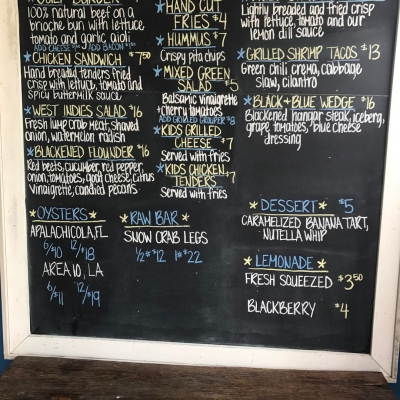 100% natural beef on a
brioche bun with lettuce
tomato and garlic aioli
ADD CHEESE ADD BACON
CHICKEN SANDWICH $7.50
Hand breaded tenders fried
crisp with lettuce, tomato and
spicy buttermilk sauce
WEST INDIES SALAD $16
Fresh lump crab meat, shaved
onion, watermelon radish
BLACKENED FLOUNDER $16
Red beets, cucumber, red pepper,
onion, tomatoes, goat cheese, citrus
Vinaigrette, candied pecans
HAND CUT
FRIES $4
HUMMUS $7
Crispy pita chips
MIXED GREEN
SALAD $5
Balsamic vinaigrette
cherry tomatoes
ADD GRILLED GROUPER $8
KIDS GRILLED
CHEESE $7
Served with fries
KIDS CHICKEN
TENDERS $7
Served with fries
Lightly breaded and fried crisp
with lettuce, tomato and our
lemon dill sauce
GRILLED SHRIMP TACOS $13
Green chili crema, cabbage
slaw, cilantro
BLACK & BLUE WEDGE $16
Blackened hangar steak, iceberg,
grape tomatoes, blue cheese
dressing
OYSTERS
APALACHICOLA, FL
6/$10 12/$18
AREA 10, LA
6/$11 12/$19
RAW BAR
SNOW CRAB LEGS
1/2# $12 1# $22
DESSERT $5
CARAMELIZED BANANA TART,
NUTELLA WHIP
LEMONADE
FRESH SQUEEZED $3.50
BLACKBERRY $4